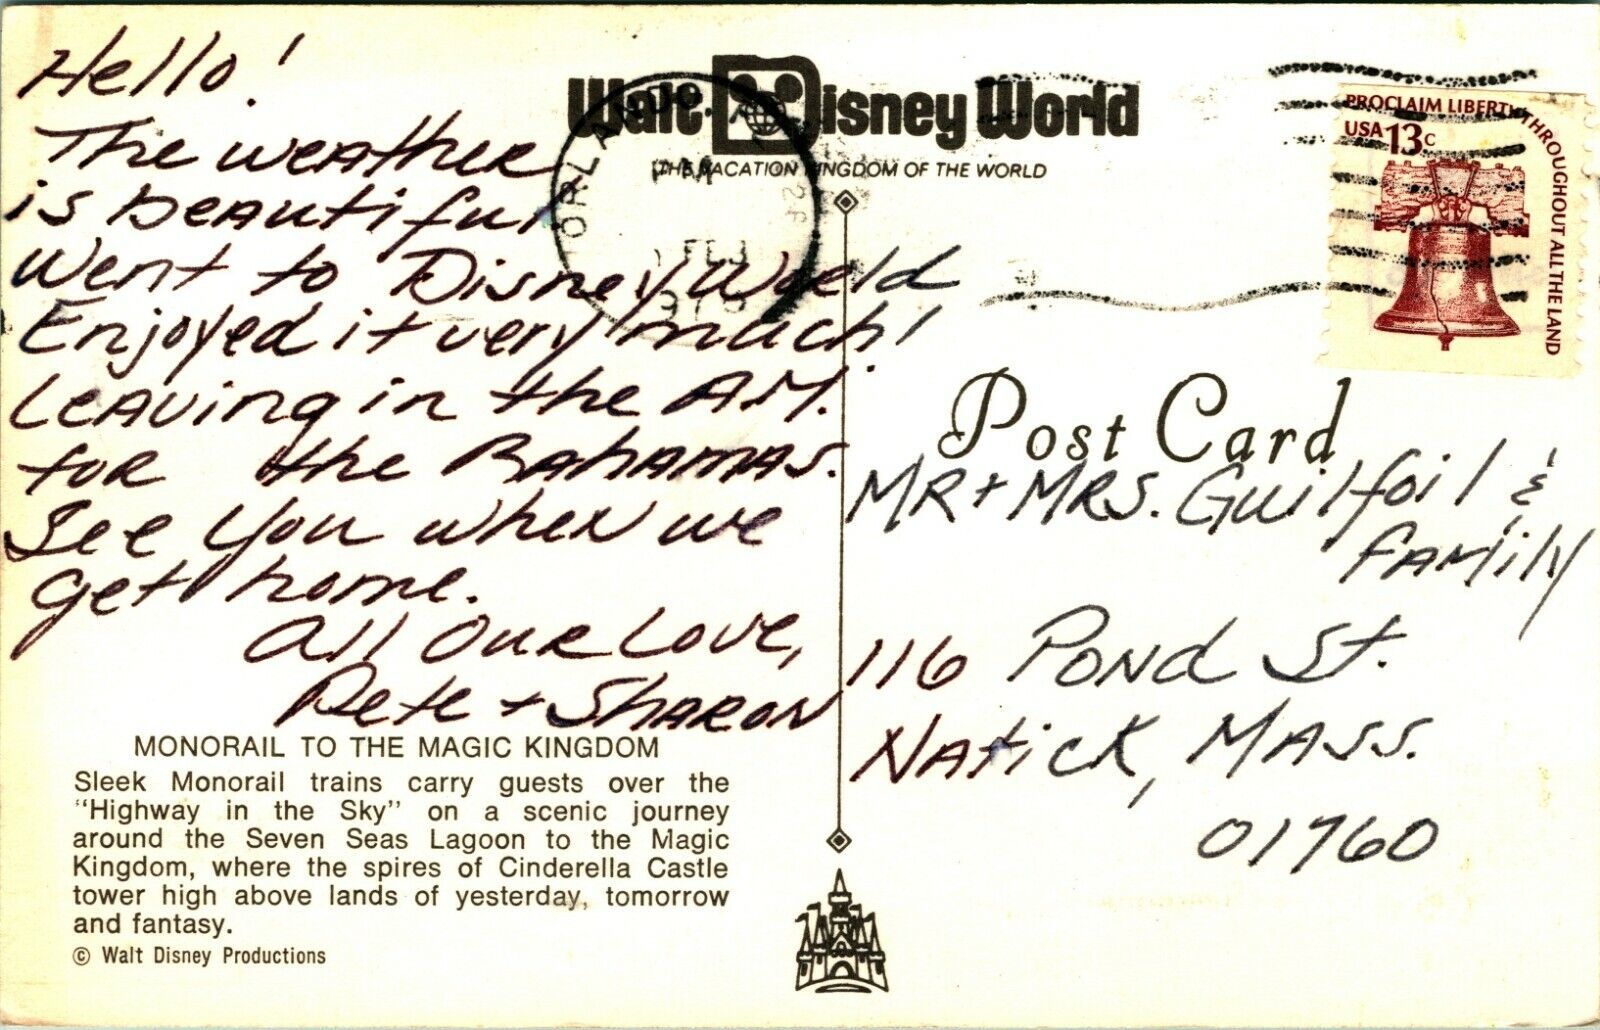 Hello!
The weather
is beautiful
Went to Disney World
Enjoyed it very much!
Leaving in the A.M.
for the Bahamas.
See you when we
get home.
All Our Love,
Pete + Sharon
MONORAIL TO THE MAGIC KINGDOM
Sleek Monorail trains carry guests over the
"Highway in the Sky" on a scenic journey
around the Seven Seas Lagoon to the Magic
Kingdom, where the spires of Cinderella Castle
tower high above lands of yesterday, tomorrow
and fantasy.
© Walt Disney Productions
Walt Disney World
THE VACATION KINGDOM OF THE WORLD
ORLANDO
PM
FEB
PROCLAIM LIBERTY THROUGHOUT ALL THE LAND
USA 13c
Post Card
MR + MRS. Guilfoil &
family
116 Pond St.
Natick, Mass.
01760